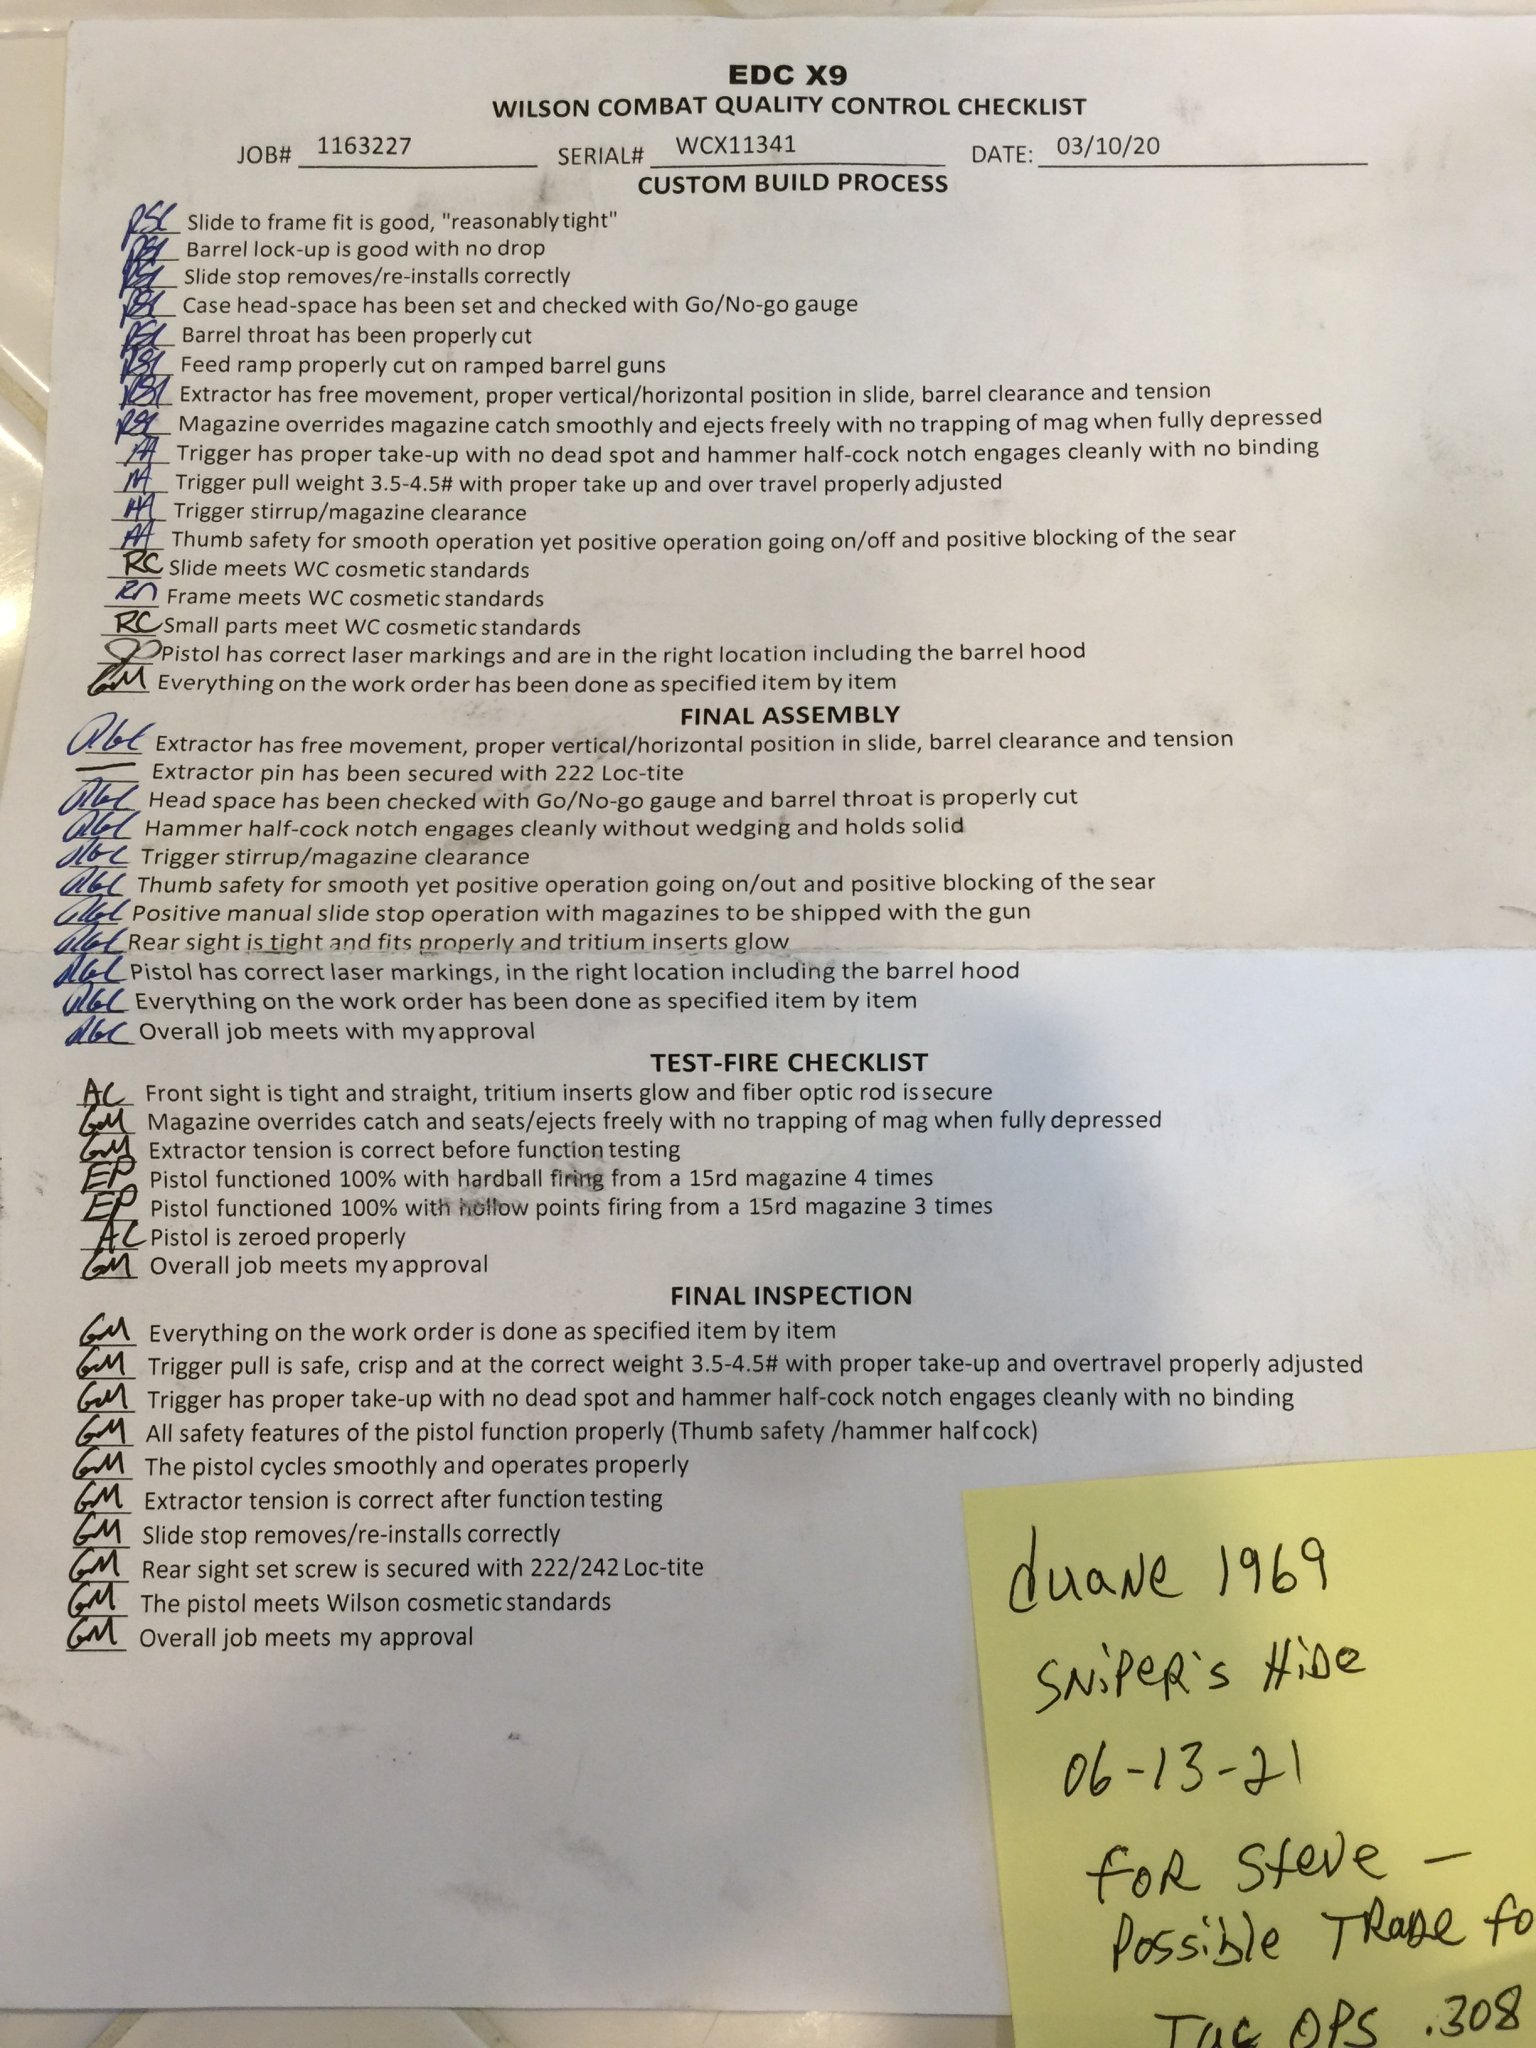 EDC X9
WILSON COMBAT QUALITY CONTROL CHECKLIST
JOB# 1163227 SERIAL# WCX11341 DATE: 03/10/20
CUSTOM BUILD PROCESS
Slide to frame fit is good, "reasonably tight"
Barrel lock-up is good with no drop
Slide stop removes/re-installs correctly
Case head-space has been set and checked with Go/No-go gauge
Barrel throat has been properly cut
Feed ramp properly cut on ramped barrel guns
Extractor has free movement, proper vertical/horizontal position in slide, barrel clearance and tension
Magazine overrides magazine catch smoothly and ejects freely with no trapping of mag when fully depressed
AA Trigger has proper take-up with no dead spot and hammer half-cock notch engages cleanly with no binding
AA Trigger pull weight 3.5-4.5# with proper take up and over travel properly adjusted
AA Trigger stirrup/magazine clearance
AA Thumb safety for smooth operation yet positive operation going on/off and positive blocking of the sear
RC Slide meets WC cosmetic standards
Frame meets WC cosmetic standards
RC Small parts meet WC cosmetic standards
Pistol has correct laser markings and are in the right location including the barrel hood
GM Everything on the work order has been done as specified item by item
FINAL ASSEMBLY
Extractor has free movement, proper vertical/horizontal position in slide, barrel clearance and tension
Extractor pin has been secured with 222 Loc-tite
Head space has been checked with Go/No-go gauge and barrel throat is properly cut
Hammer half-cock notch engages cleanly without wedging and holds solid
Trigger stirrup/magazine clearance
Thumb safety for smooth yet positive operation going on/out and positive blocking of the sear
Positive manual slide stop operation with magazines to be shipped with the gun
Rear sight is tight and fits properly and tritium inserts glow
Pistol has correct laser markings, in the right location including the barrel hood
Everything on the work order has been done as specified item by item
Overall job meets with my approval
TEST-FIRE CHECKLIST
AC Front sight is tight and straight, tritium inserts glow and fiber optic rod is secure
GM Magazine overrides catch and seats/ejects freely with no trapping of mag when fully depressed
GM Extractor tension is correct before function testing
EP Pistol functioned 100% with hardball firing from a 15rd magazine 4 times
EP Pistol functioned 100% with hollow points firing from a 15rd magazine 3 times
AC Pistol is zeroed properly
GM Overall job meets my approval
FINAL INSPECTION
GM Everything on the work order is done as specified item by item
GM Trigger pull is safe, crisp and at the correct weight 3.5-4.5# with proper take-up and overtravel properly adjusted
GM Trigger has proper take-up with no dead spot and hammer half-cock notch engages cleanly with no binding
GM All safety features of the pistol function properly (Thumb safety /hammer half cock)
GM The pistol cycles smoothly and operates properly
GM Extractor tension is correct after function testing
GM Slide stop removes/re-installs correctly
GM Rear sight set screw is secured with 222/242 Loc-tite
GM The pistol meets Wilson cosmetic standards
GM Overall job meets my approval
duane 1969
Sniper's Hide
06-13-21
for Steve -
Possible Trade fo
Tac OPS .308